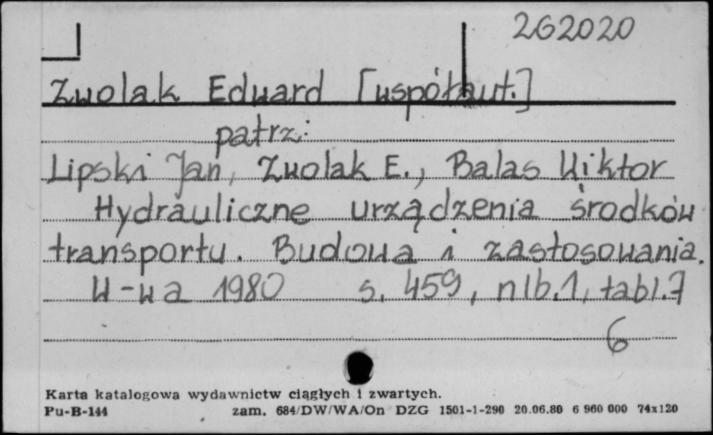 262020
Zwolak Edward [współaut.]
patrz:
Lipski Jan, Zwolak E., Balas Wiktor
Hydrauliczne urządzenia środków
transportu. Budowa i zastosowania.
W-wa 1980 s. 459, nlb.1, tabl.7
6
Karta katalogowa wydawnictw ciągłych i zwartych.
Pu-B-144 zam. 684/DW/WA/On DZG 1501-1-290 20.06.80 6 960 000 74x120